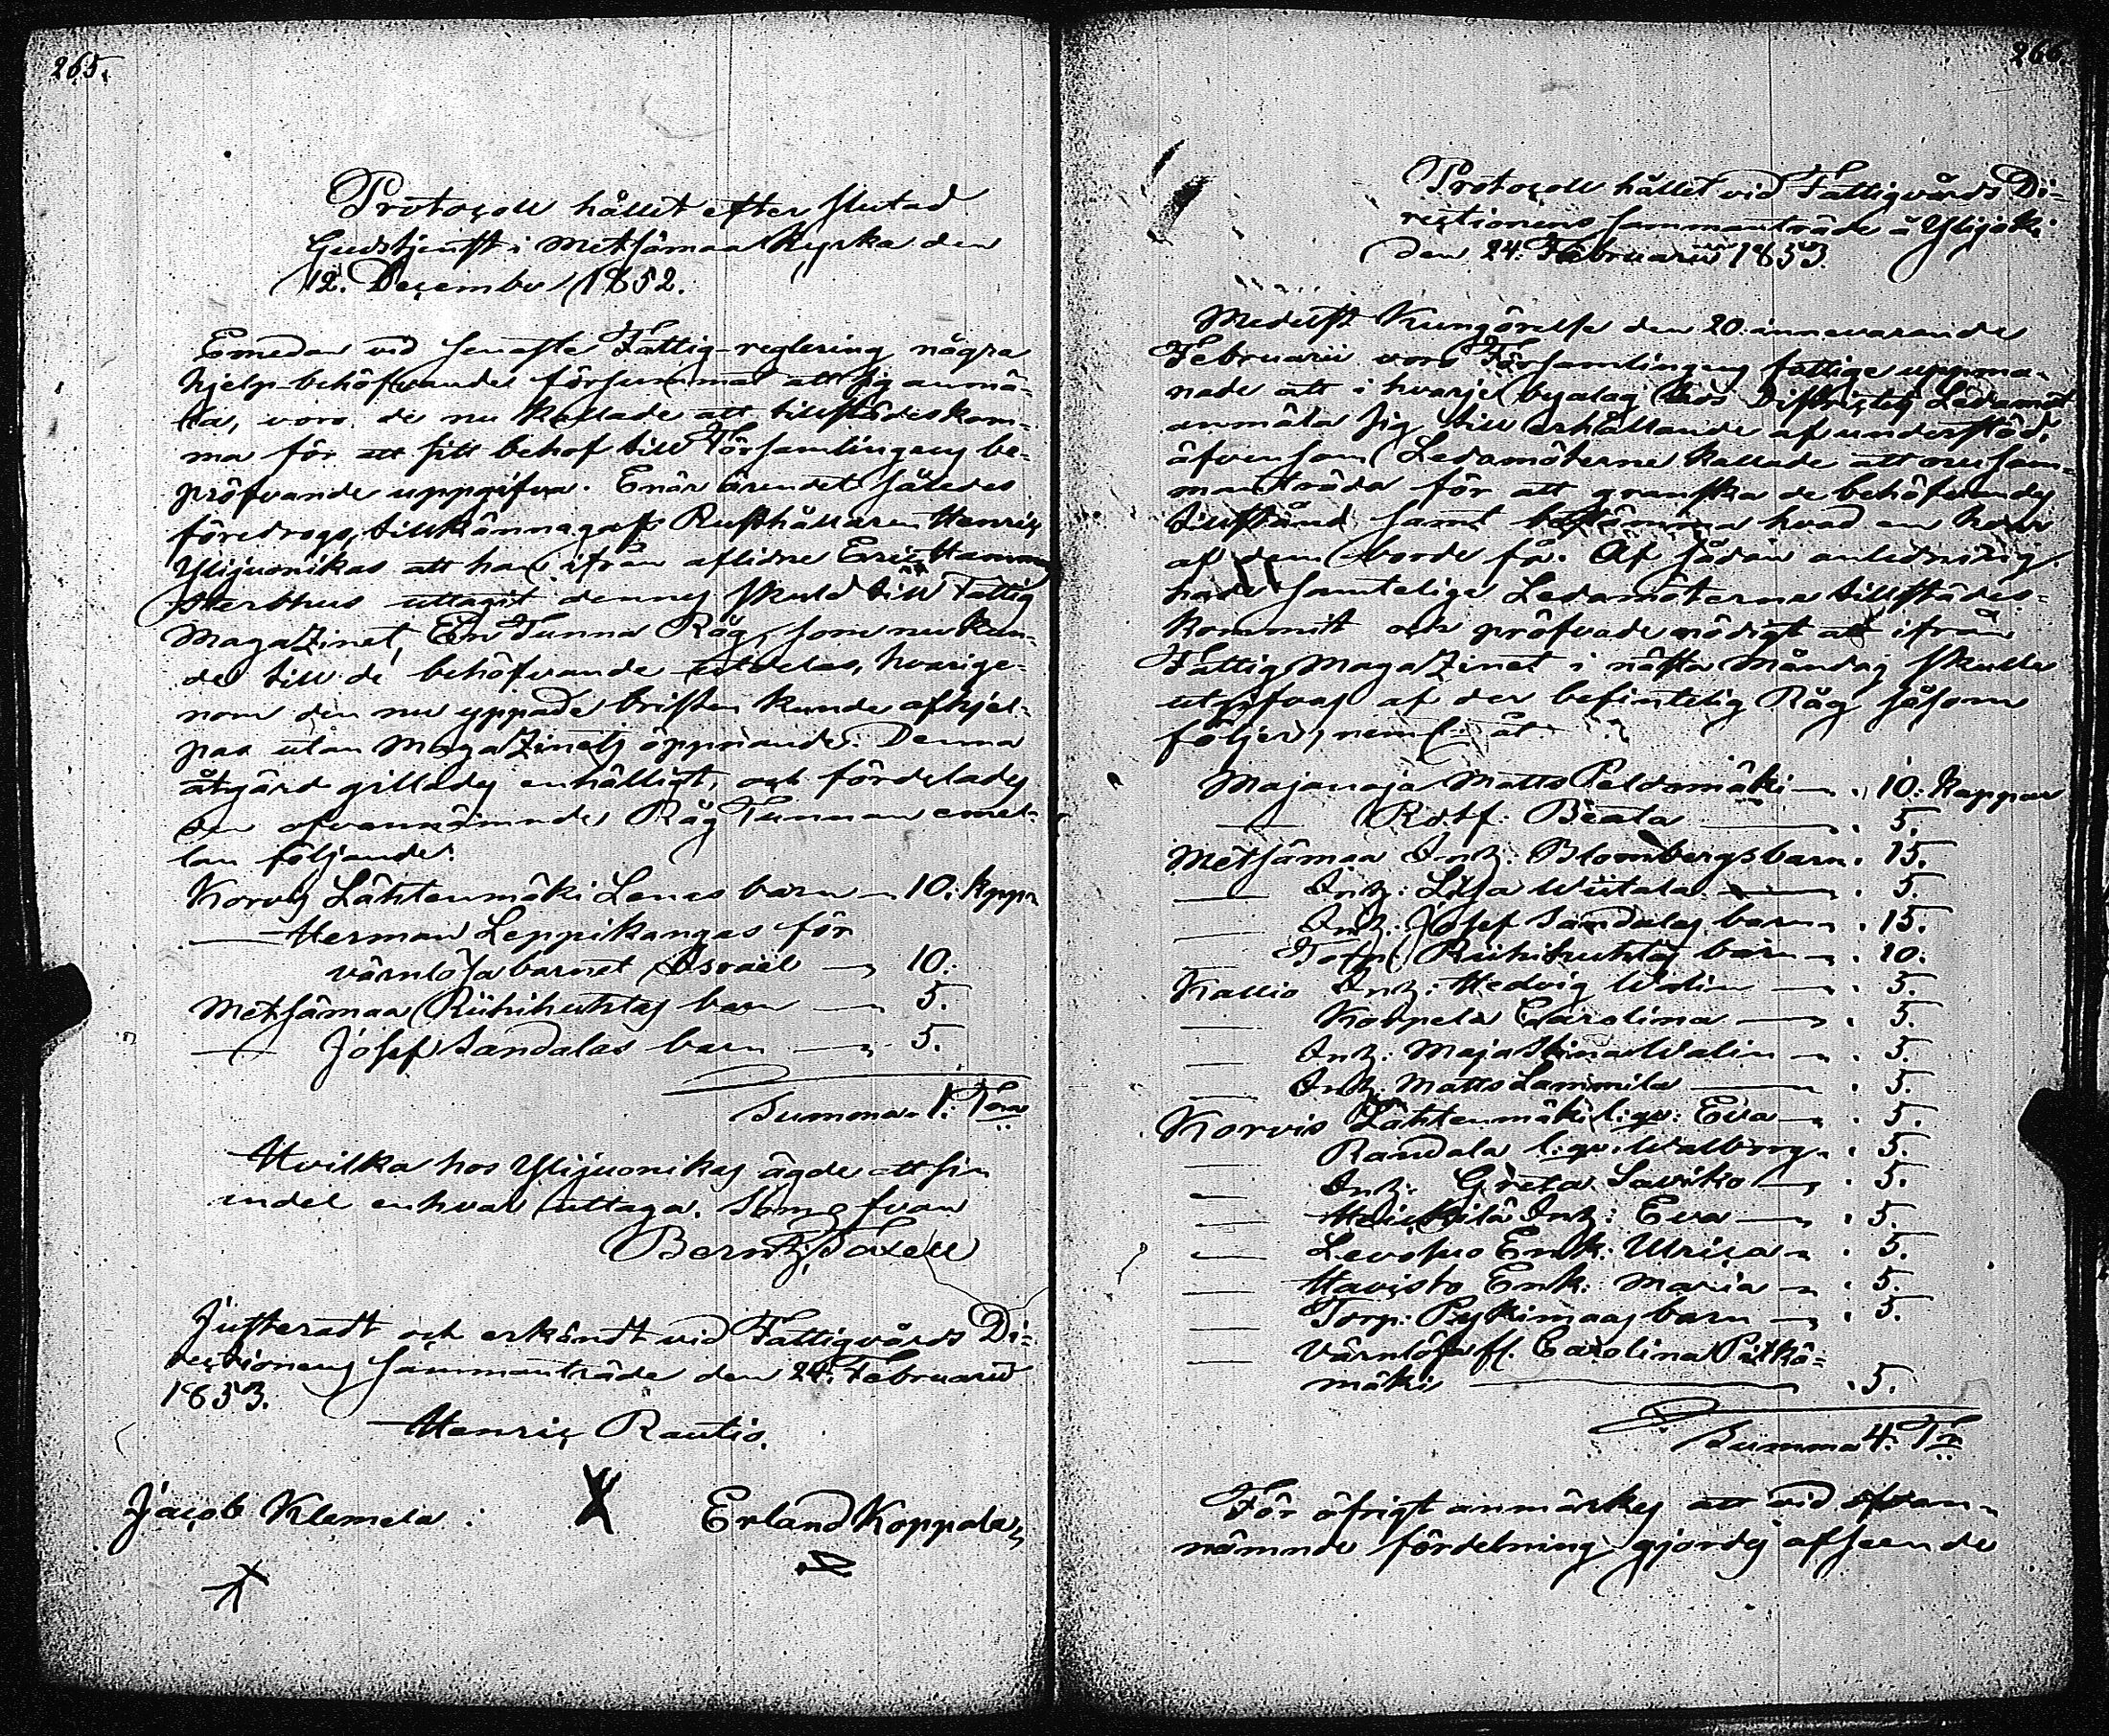 265.
Protocoll hållet efter slutad
Gudstjenst i Metsämaa Kyrka den
12. December 1852.
Emedan vid senaste Fattig-reglering några
hjelp-behöfvande försummat att sig anmä-
la, voro de nu kallade att tillstädeskom-
ma för att sitt behof till Församlingens be-
pröfvande uppgifva. Enär ärendet således
föredrogs, tillkännagafs Rusthållaren Henric
Ylijuonikas att han ifrån aflidne Eric
sterbhus uttagit dennes skuld till Fattig
Magazinet, En Tunna Råg, som nu kun-
de till de behöfvande utdelas, hvarige-
nom den nu yppade bristen kunde afhjel-
pas utan Magazinets öppnande. Denna
åtgärd gillades enhälligt, och fördelades
den ofvannämnde Råg Tunnan emel-
lan följande:
Korvis Lähtenmäki Lenas barn — 10. kappr
— Herman Leppikangas för
värnlösa barnet Israel — 10.
Metsämaa Riihihuhtas barn — 5.
— Josef Sandalas barn — 5.
Summa 1. Tna
Hvilka hos Ylijuonikas ägde att sin
andel enhvar uttaga. Som ofvan
Bernh. Taxell
Justeradt och erkändt vid Fattigvårds Di-
rectionens sammanträde den 24. Februarii
1853.
Henric Rautio.
Jacob Klemela.
Erland Koppala
266.
Protocoll hållet vid Fattigvårds Di-
rectionens sammanträde å Ylijoki
den 24. Februarii 1853.
Medelst Kungörelse den 20. innevarande
Februarii voro Församlingens fattige uppma-
nade att i hvarje byalag hos Districtets Ledamot
anmäla sig till erhållande af understöd,
äfvensom Ledamöterne kallade att nu sam-
manträda för att granska de behöfvandes
tillstånd samt bestämma hvad en hvar
af dem borde få. Af sådan anledning
hade samtelige Ledamöterna tillstädes-
kommit och pröfvade nödigt att ifrån
Fattig Magazinet i nästa Måndag skulle
utgifvas af der befintelig Råg såsom
följer, neml: åt
Majanoja Matts Peldomäki — 10. kappar
— Rotf: Beata — 5.
Metsämaa Inh: Blombergs barn 15.
— Inh: Lisa Wiitala — 5.
— Inh: Josef Sandalas barn 15.
— Torp: Riihihuhtas barn 10.
Kallio Inh: Hedvig Walin — 5.
— Korpela Carolina — 5.
— Inh: Maja Stina Walin — 5.
— Inh: Matts Lammila — 5.
Korvis Lähtenmäki l: qv: Eva — 5.
— Randala l: qv: Walborg 5.
— Inh: Greta Saviko — 5.
— Heickilä Inh: Eva — 5.
— Levosuo Enk: Ulrica 5.
— Havisto Enk: Maria 5.
— Torp: Pykimaas barn — 5.
— Värnlösa fl. Carolina Pitkä-
mäki — 5.
Summa 4. Tr
För öfrigt anmärkes att vid ofvan-
nämnde fördelning gjordes afseende